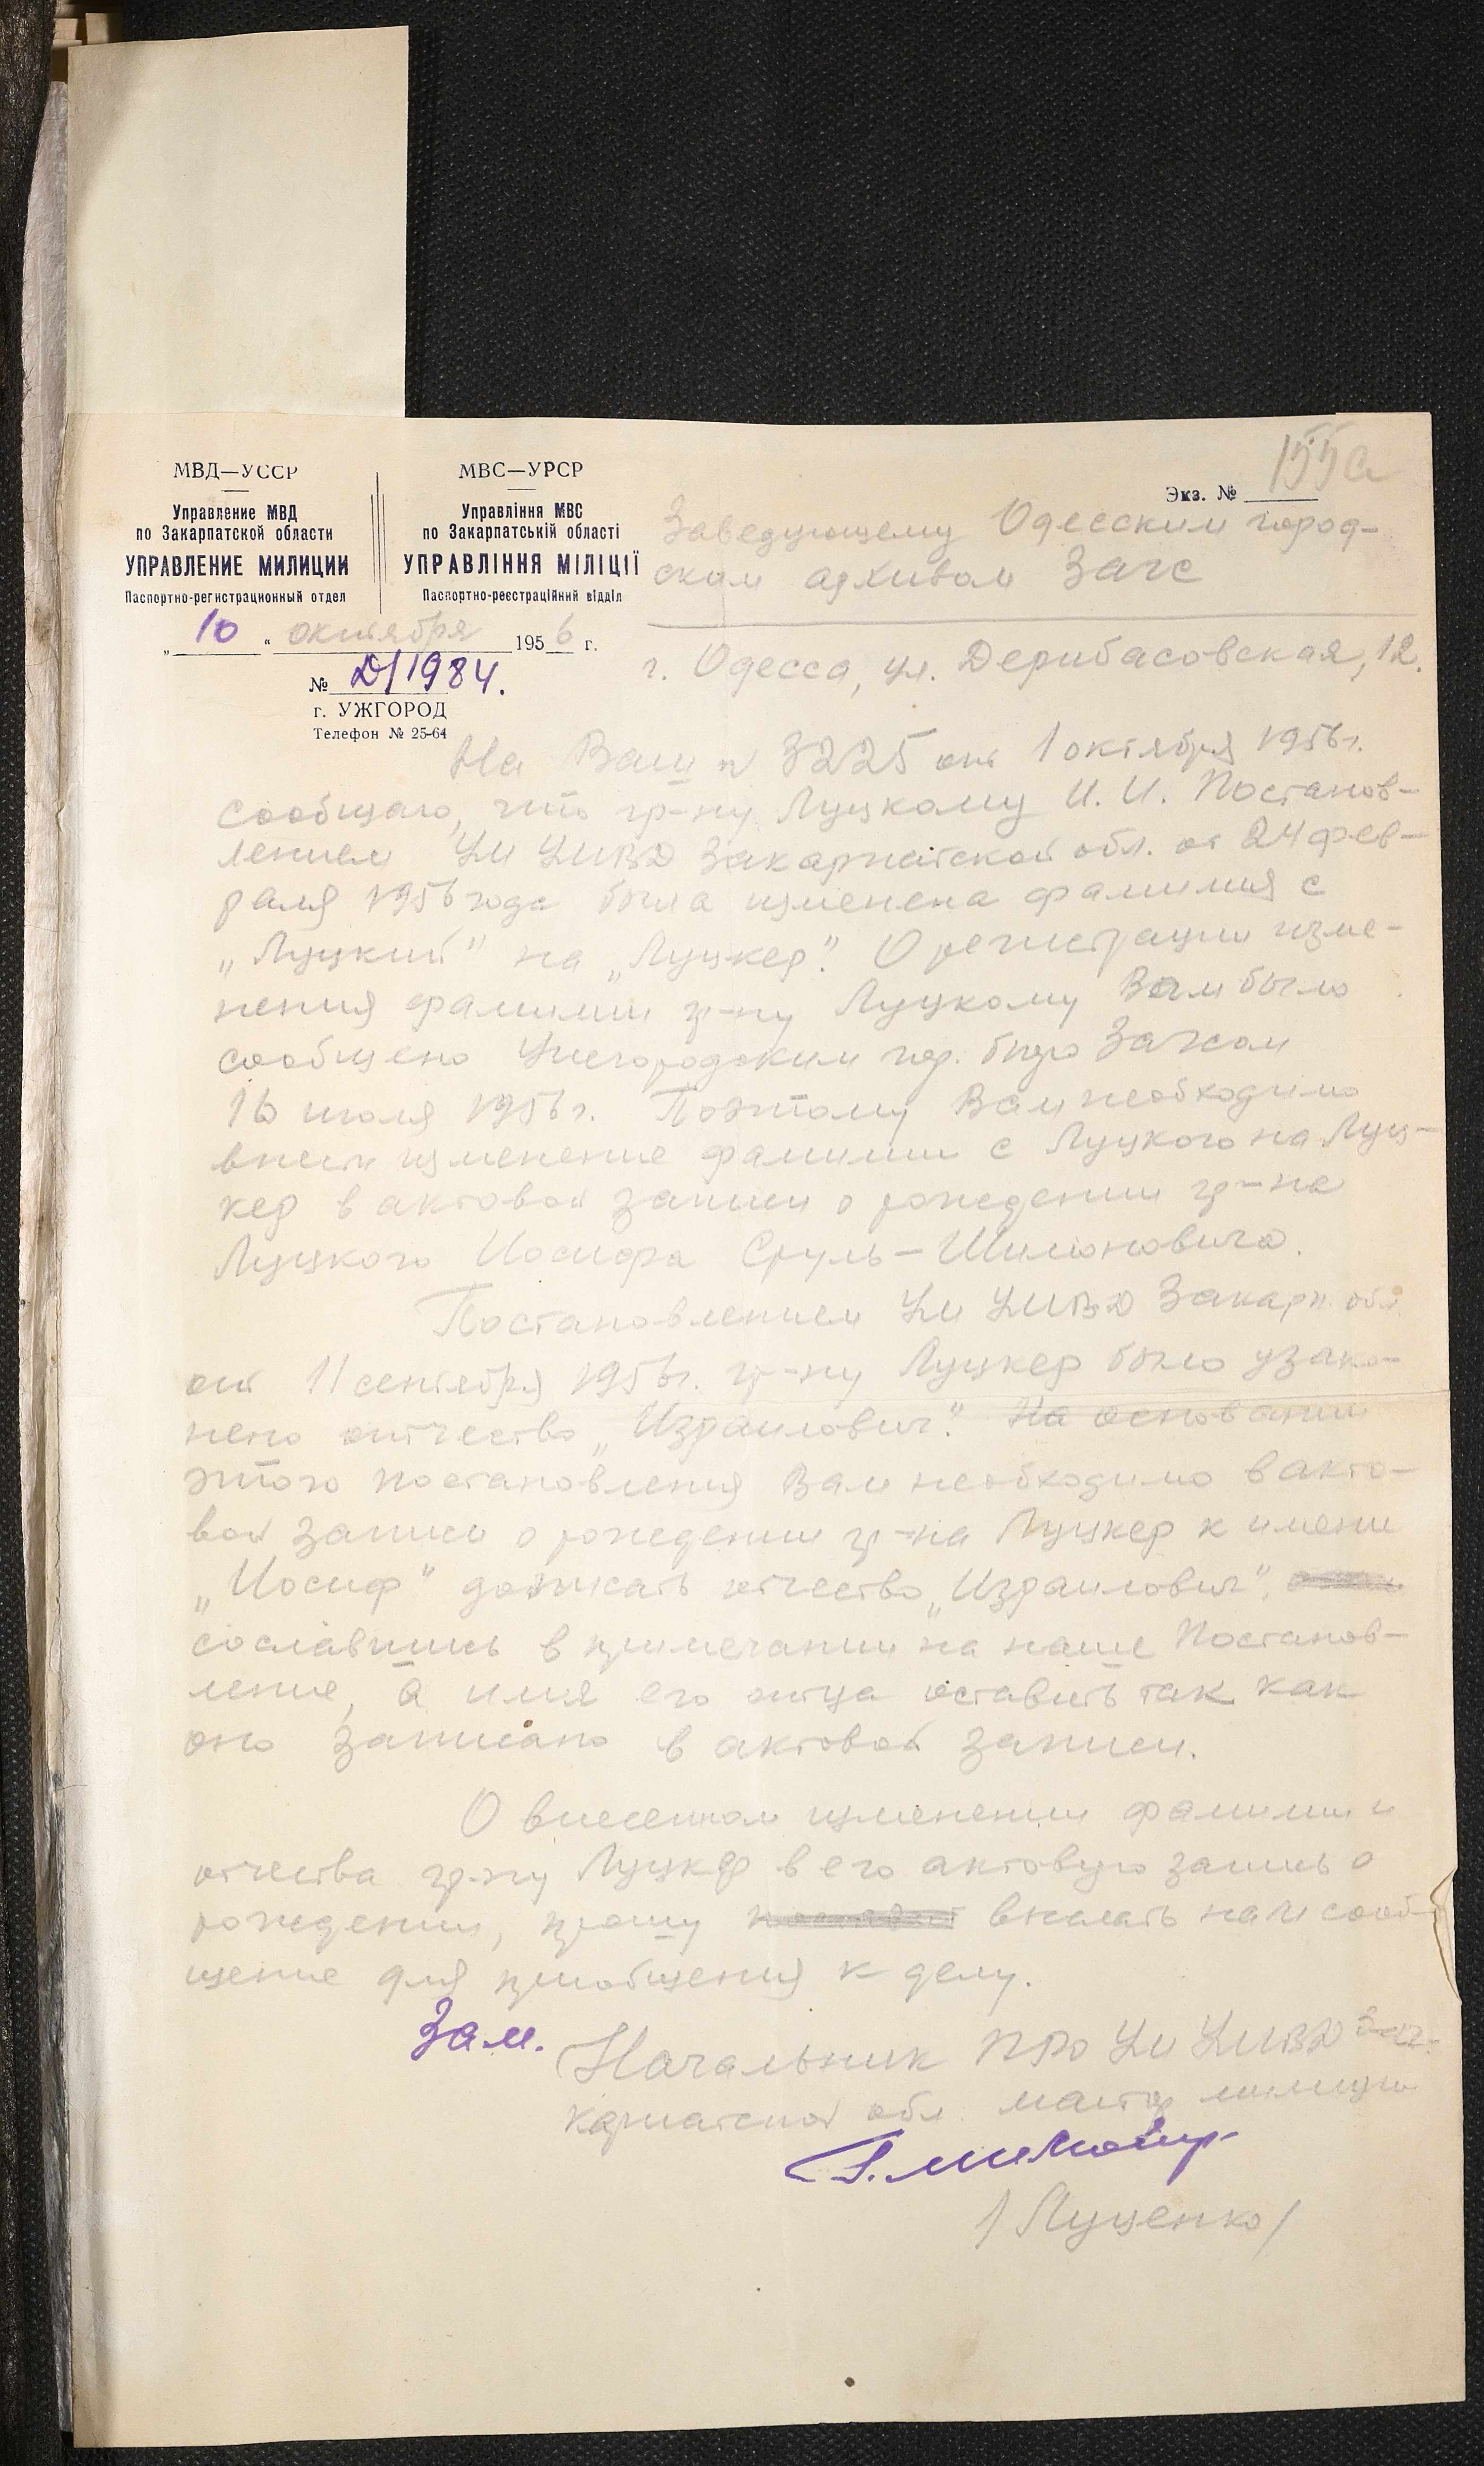 155а
Экз. №
МВД—УССР
Управление МВД
по Закарпатской области
УПРАВЛЕНИЕ МИЛИЦИИ
Паспортно-регистрационный отдел
МВС—УРСР
Управління МВС
по Закарпатській області
УПРАВЛІННЯ МІЛІЦІЇ
Паспортно-реєстраційний відділ
„ 10 “ октября 1956 г.
№ Д/1984.
г. УЖГОРОД
Телефон № 25-64
Заведующему Одесским город-
ским архивом Загс
г. Одесса, ул. Дерибасовская, 12.
На Ваш № 3225 от 1 октября 1956г.
сообщаю, что гр-ну Луцкому И. И. Постанов-
лением УМ УМВД Закарпатской обл. от 24 фев-
раля 1956 года была изменена фамилия с
„Луцкий" на „Луцкер". О регистрации изме-
нения фамилии гр-ну Луцкому Вам было
сообщено Ужгородским гор. бюро Загсом
16 июля 1956г. Поэтому Вам необходимо
внести изменение фамилии с Луцкого на Луц-
кер в актовой записи о рождении гр-на
Луцкого Иосифа Сруль-Шимоновича.
Постановлением УМ УМВД Закарп. обл.
от 11 сентября 1956г. гр-ну Луцкер было узако-
нено отчество „Израилович". На основании
этого постановления Вам необходимо в акто-
вой записи о рождении гр-на Луцкер к имени
„Иосиф" дописать отчество „Израилович",
сославшись в примечании на наше Постанов-
ление, а имя его отца оставить так как
оно записано в актовой записи.
О внесенном изменении фамилии и
отчества гр-ну Луцкер в его актовую запись о
рождении, прошу выслать нам сооб-
щение для приобщения к делу.
Зам. Начальник ПРО УМ УМВД За-
карпатской обл. майор милиции
/Луценко/